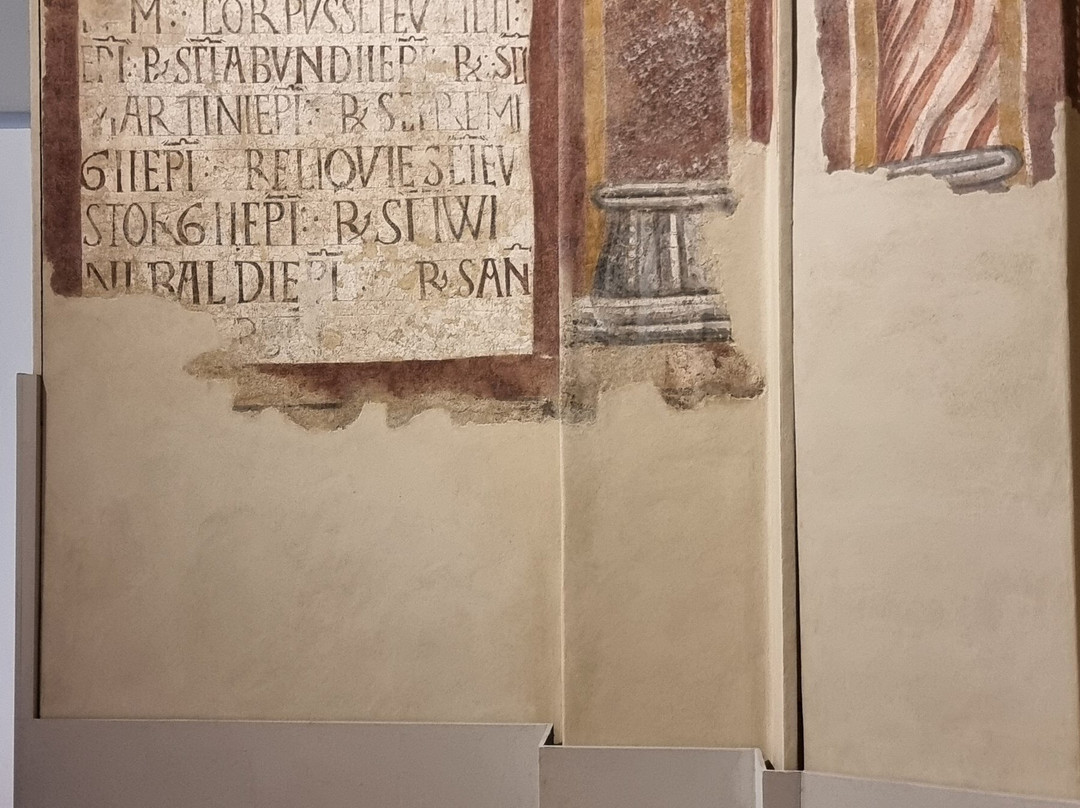 M : CORPVS SC̅I EV
EP̅I · R̵ · SC̅I ABVNDII EP̅I R̵ · SC̅I
MARTINI EP̅I : R̵ S REMI
GII EP̅I : RELIQVIE SC̅I EV
STORGII EP̅I : R̵ · SC̅I IWI
NI BALDI EP̅I R̵ SAN